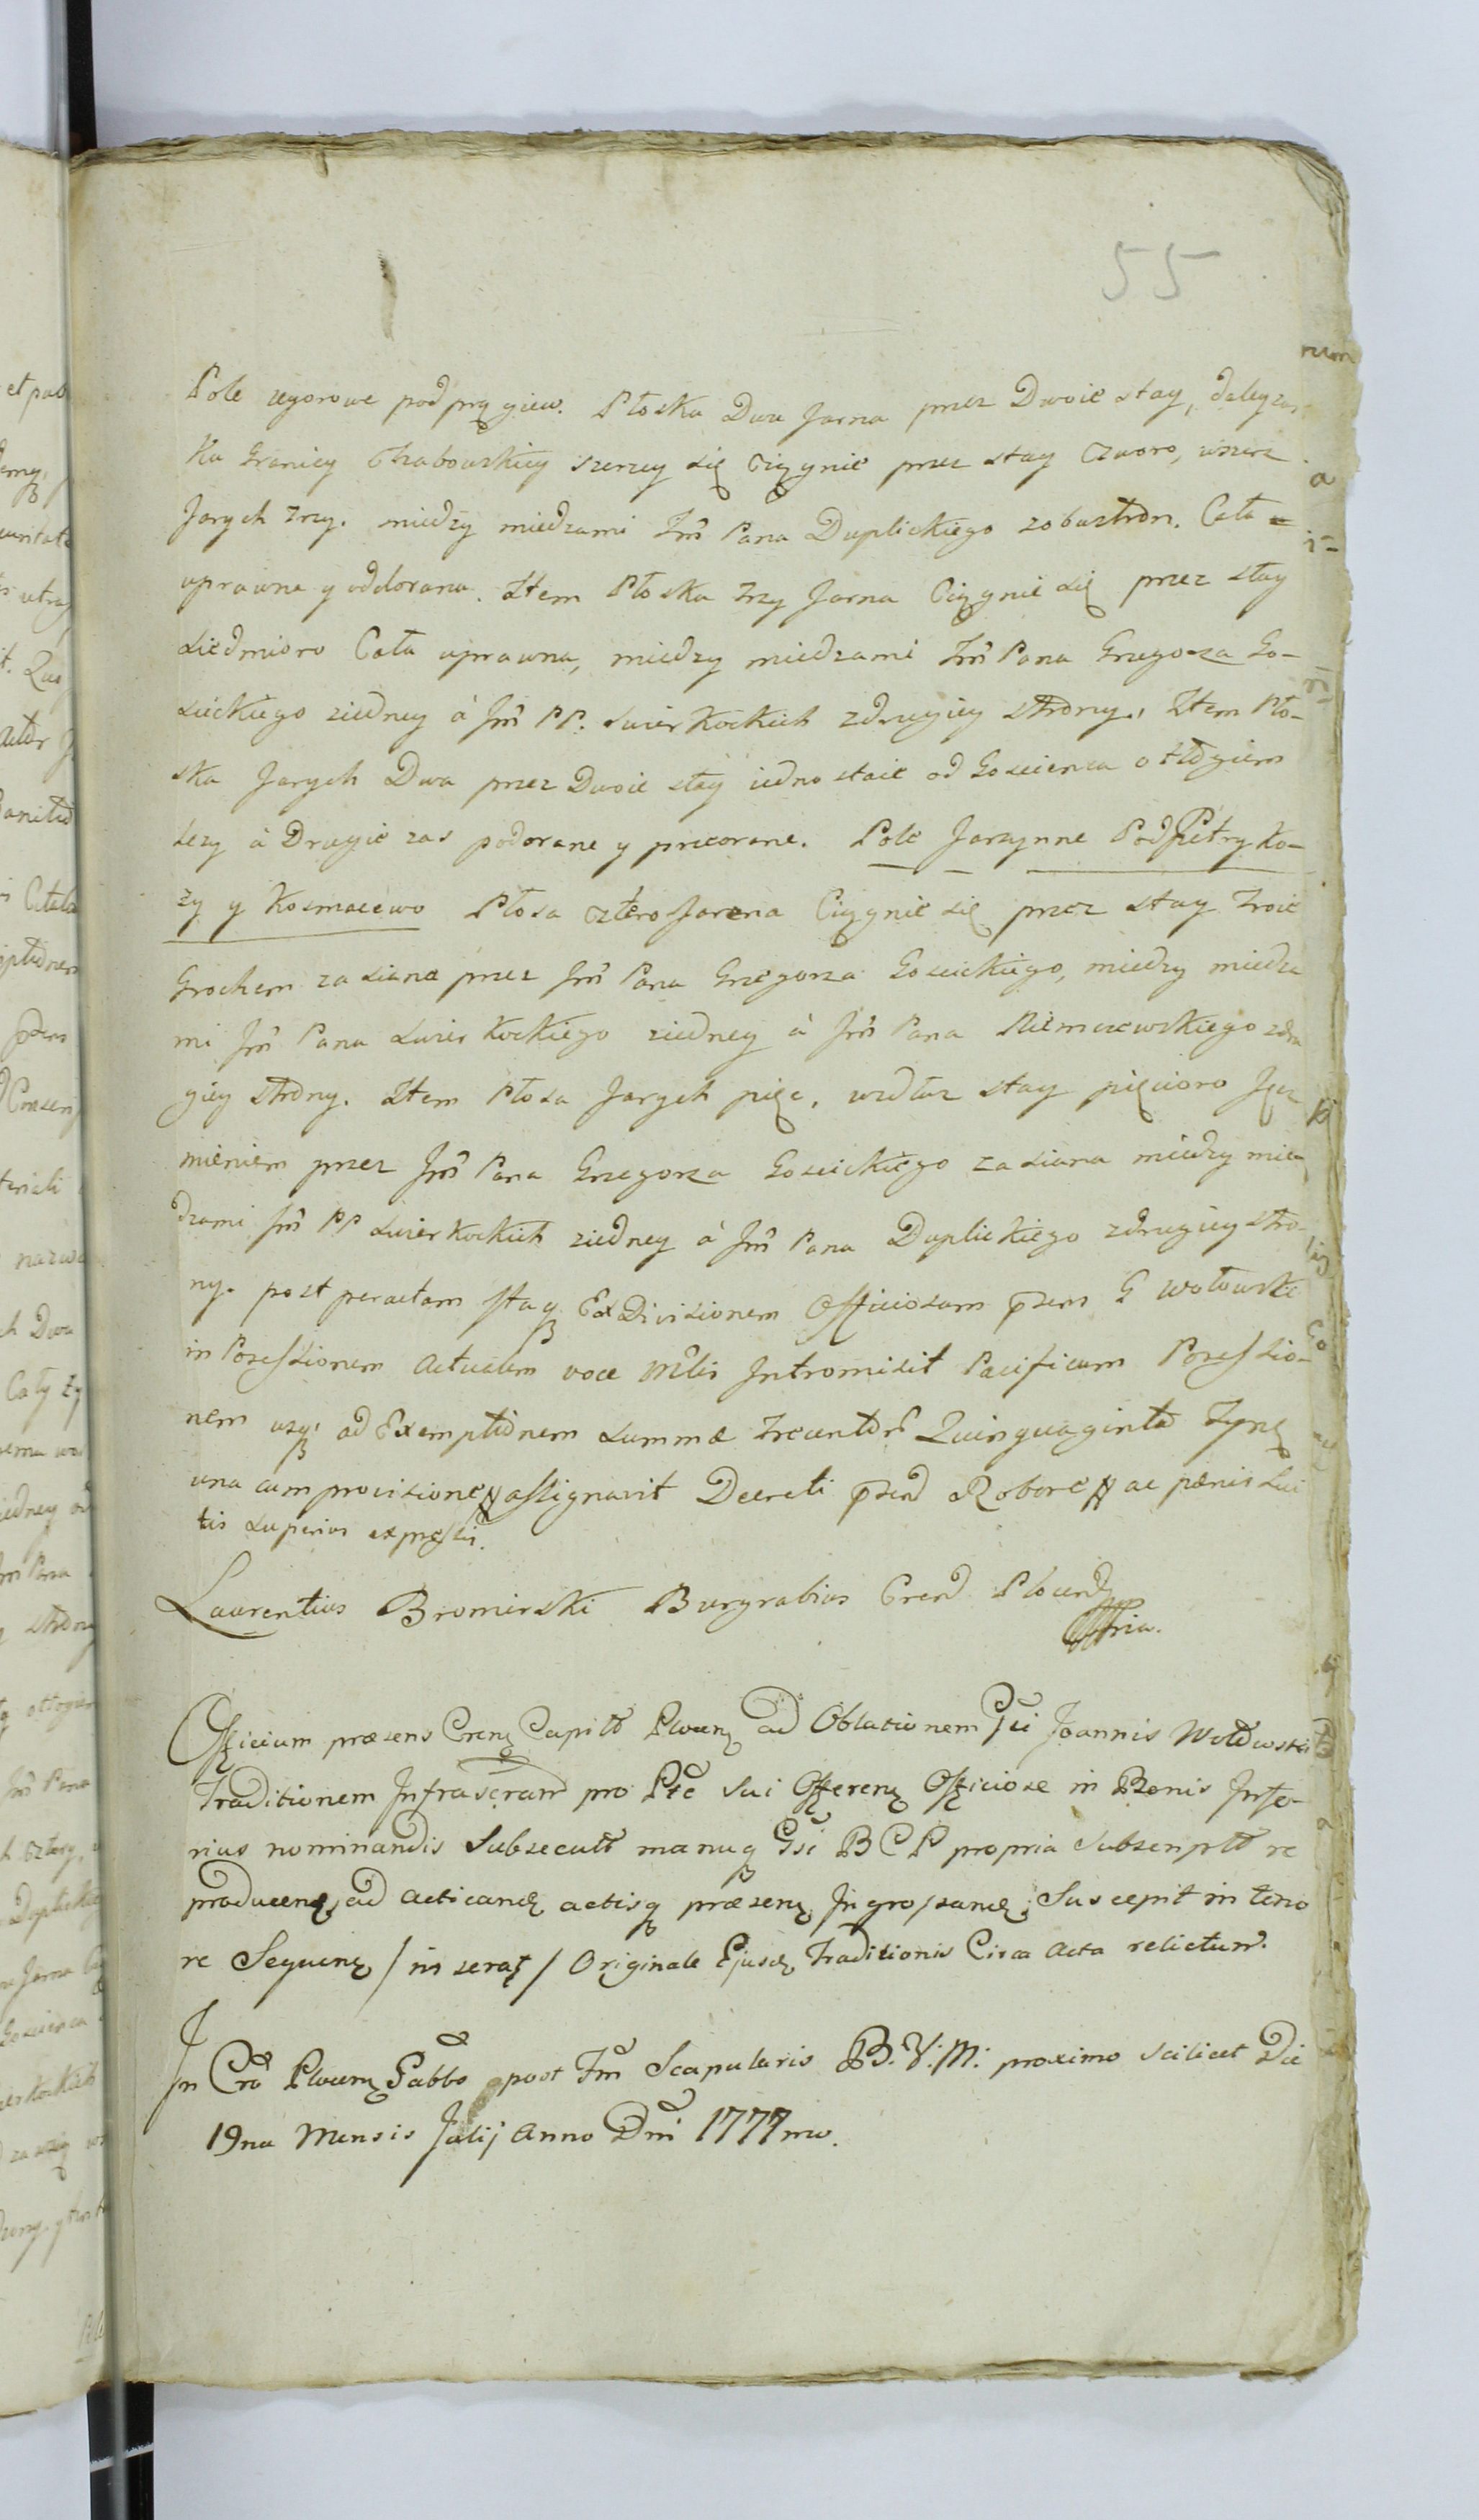 55
Pole ugorowe pod prągiew. Płoska Dwa Jarna przez Dwoie stay, daley zas
Ku Granicy Chabowskiey szerzey się Ciągnie przez stay czworo, wszerz
Jarych trzy. miedzy miedzami Jm̃ Pana Duplickiego zobustron. Cała
uprawna y oddorana. Item Płoska trzy Jarna Ciągnie się przez stay
siedmioro Cała uprawna, miedzy miedzami Jm̃ Pana Grzegorza Go-
sickiego ziedney á Jm̃ PP. Swierkockich zdrugiey strony, Item Pło-
ska Jarych Dwa przez Dwoie stay iedno staie od Goscienca odłogiem
lezy á Drugie zas podorane y przeorane. Pole Jarzynne Pod Pietryko-
zy y Kosmacewo Płosa cztero Jarena Ciągnie się przez stay troie
Grochem zasiane przez Jm̃ Pana Grzegorza Goscickiego, miedzy miedza
mi Jm̃ Pana Swierkockiego ziedney á Jm̃ Pana Niemczewskiego zdru
giey strony. Item Płosa Jarych pięc, wzdłuz stay pięcioro Jęcz
mieniem przez Jm̃ Pana Grzegorza Goscickiego zasiana miedzy mie
dzami Jm̃ PP Swierkockich ziedney á Jm̃ Pana Duplickiego zdrugiey stro-
ny. post peractam itaq Ex Divisionem Officiosam p̃sens G Wołowski
in Possessionem Actualem voce M̃lis Intromisit Pacificam Possessio-
nem usq ad Exemptionem Summæ Trecentor̃ Quinquaginta Tynf
una cum provisione assignavit Decreti p̃send Robore ac pœnis Lui
tis superius expressis.
Laurentius Bromirski Burgrabius Cren Plocen
mpria.
Officium præsens Cren Capitt Plocen ad Oblationem Gsi Joannis Wołowski
Traditionem Infrascram pro Pte sui Offeren Officiose in Bonis Infe-
rius nominandis Subsecutt manuq Gsi B C P propria Subscriptt re
producen ad acticand actisq præsen Ingrossand, Suscepit in teno
re Sequen / inserat / Originale Ejusd Traditionis Circa Acta relictum.
In Cro Plocen Sabbo post Fm̃ Scapularis B. V. M. proximo scilicet Die
19na Mensis Julij Anno Dni 1777mo.